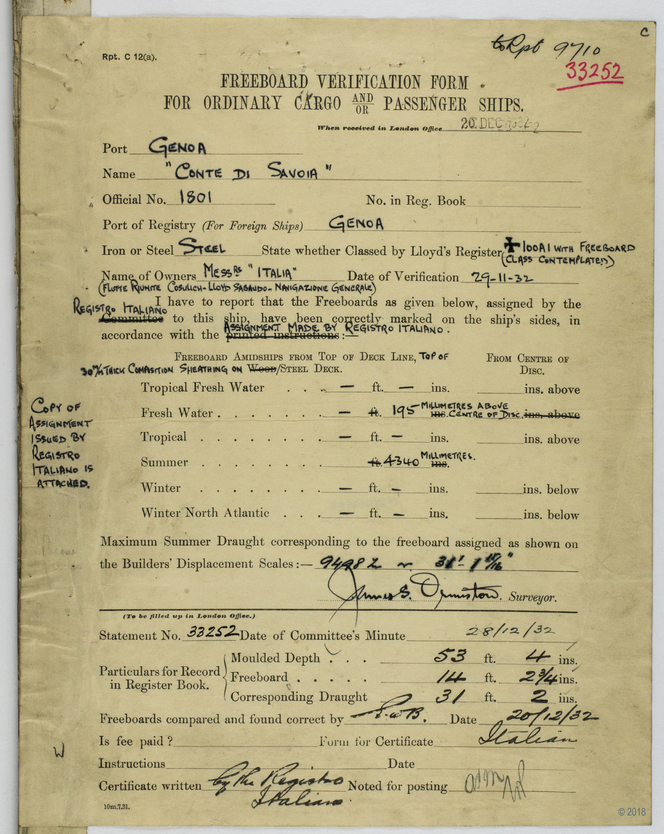 c
to Rpt 9710
Rpt. C 12(a).
33252
FREEBOARD VERIFICATION FORM
FOR ORDINARY CARGO AND OR PASSENGER SHIPS.
When received in London Office 20 DEC
Port GENOA
Name "CONTE DI SAVOIA"
Official No. 1801 No. in Reg. Book
Port of Registry (For Foreign Ships) GENOA
Iron or Steel STEEL State whether Classed by Lloyd's Register ✠100A1 WITH FREEBOARD
(CLASS CONTEMPLATED)
Name of Owners MESSRS "ITALIA" Date of Verification 29-11-32
(FLOTTE RIUNITE COSULICH-LLOYD SABAUDO-NAVIGAZIONE GENERALE)
I have to report that the Freeboards as given below, assigned by the
REGISTRO ITALIANO
Committee to this ship, have been correctly marked on the ship's sides, in
ASSIGNMENT MADE BY REGISTRO ITALIANO.
accordance with the printed instructions:—
FREEBOARD AMIDSHIPS FROM TOP OF DECK LINE, TOP OF FROM CENTRE OF
30 m/m THICK COMPOSITION SHEATHING ON Wood/STEEL DECK. DISC.
Tropical Fresh Water . . . — ft. — ins. ins. above
COPY OF
ASSIGNMENT
ISSUED BY
REGISTRO
ITALIANO IS
ATTACHED.
Fresh Water . . . . . . — ft. 195 MILLIMETRES ABOVE ins. CENTRE OF DISC. ins. above
Tropical . . . . . . . — ft. — ins. ins. above
Summer . . . . . . . ft. 4340 MILLIMETRES. ins.
Winter . . . . . . . — ft. — ins. ins. below
Winter North Atlantic . . . — ft. — ins. ins. below
Maximum Summer Draught corresponding to the freeboard assigned as shown on
the Builders' Displacement Scales:— 31' 1 15/16"
James G. Ormiston. Surveyor.
(To be filled up in London Office.)
Statement No. 33252 Date of Committee's Minute 28/12/32
Particulars for Record in Register Book.
Moulded Depth . . . 53 ft. 4 ins.
Freeboard . . . . . 14 ft. 2 3/4 ins.
Corresponding Draught 31 ft. 2 ins.
Freeboards compared and found correct by Date 20/12/32
W
Is fee paid? Form for Certificate Italian
Instructions Date
Certificate written by the Registro Italiano. Noted for posting
10m.7.31.
© 2018